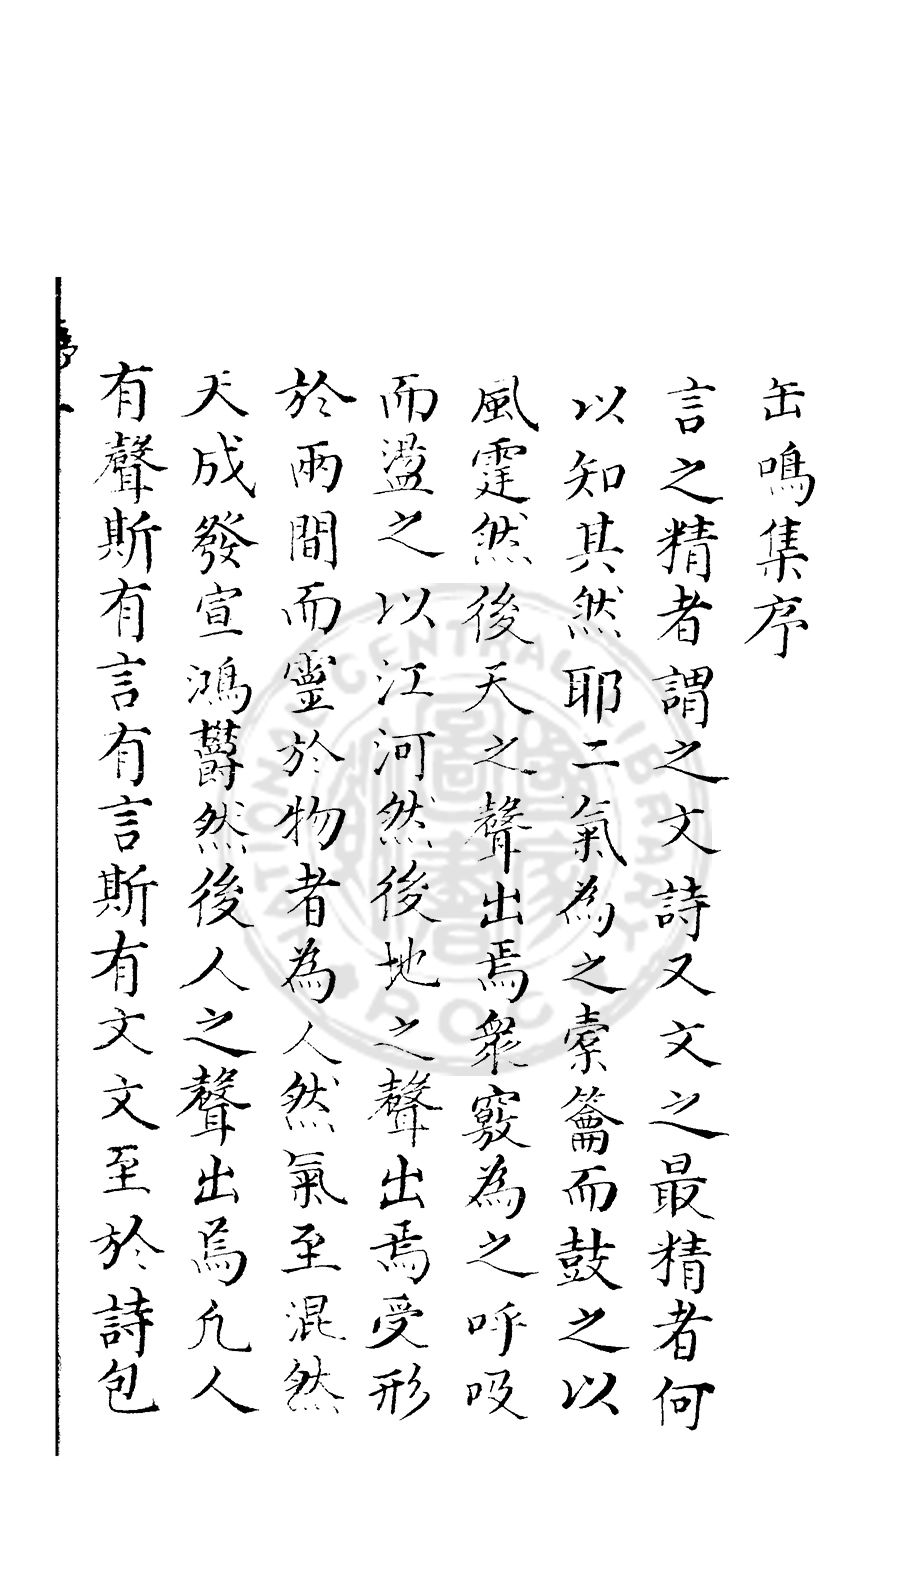 缶鳴集序
言之精者謂之文詩又文之最精者何
以知其然耶二氣為之橐籥而鼓之以
風霆然後天之聲出焉衆竅為之呼吸
而盪之以江河然後地之聲出焉受形
於兩間而靈於物者為人然氣至混然
天成發宣鴻欝然後人之聲出焉凡人
有聲斯有言有言斯有文文至於詩包
NATIONAL CENTRAL LIBRARY R.O.C